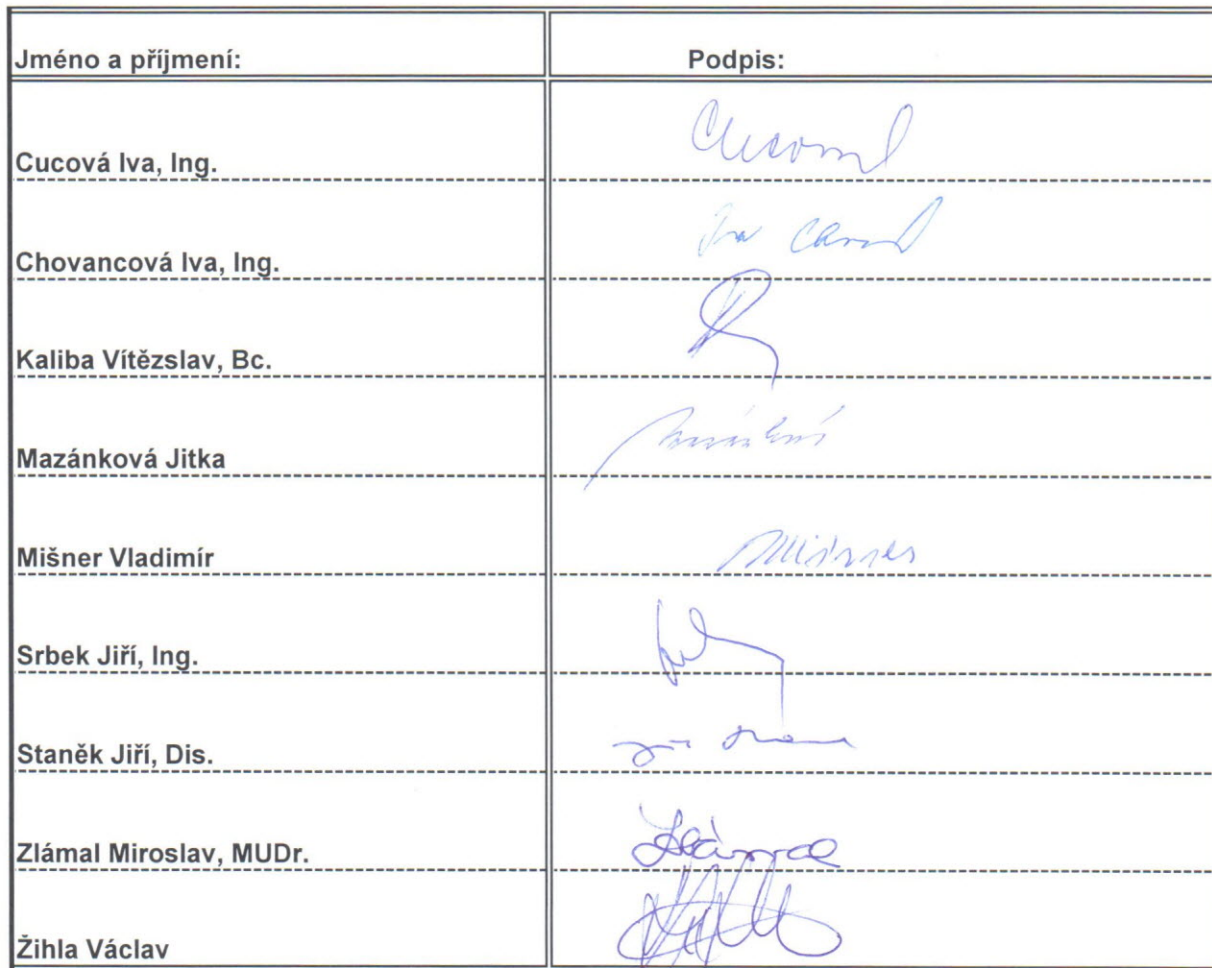 Jméno a příjmení: Podpis:
Cucová Iva, Ing.
Chovancová Iva, Ing.
Kaliba Vítězslav, Bc.
Mazánková Jitka
Mišner Vladimír Mišner
Srbek Jiří, Ing.
Staněk Jiří, Dis.
Zlámal Miroslav, MUDr. Zlámal
Žihla Václav